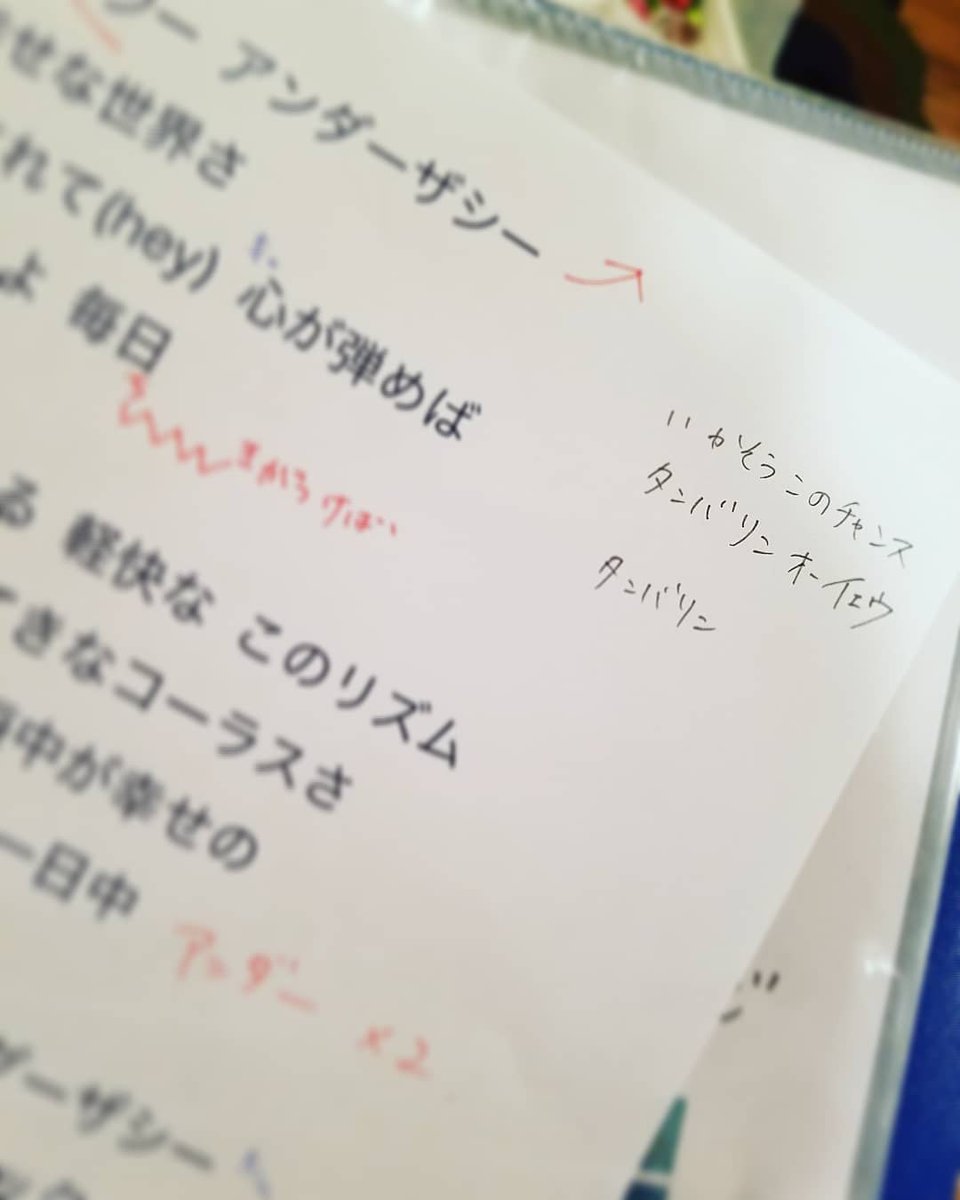 アンダーザシー
せな世界さ
れて(hey) 心が弾めば
よ 毎日
る 軽快な このリズム
きなコーラスさ
中が幸せの
一日中
アンダー ×2
ーザシー
いかそうこのチャンス
タンバリン オーイェウ
タンバリン